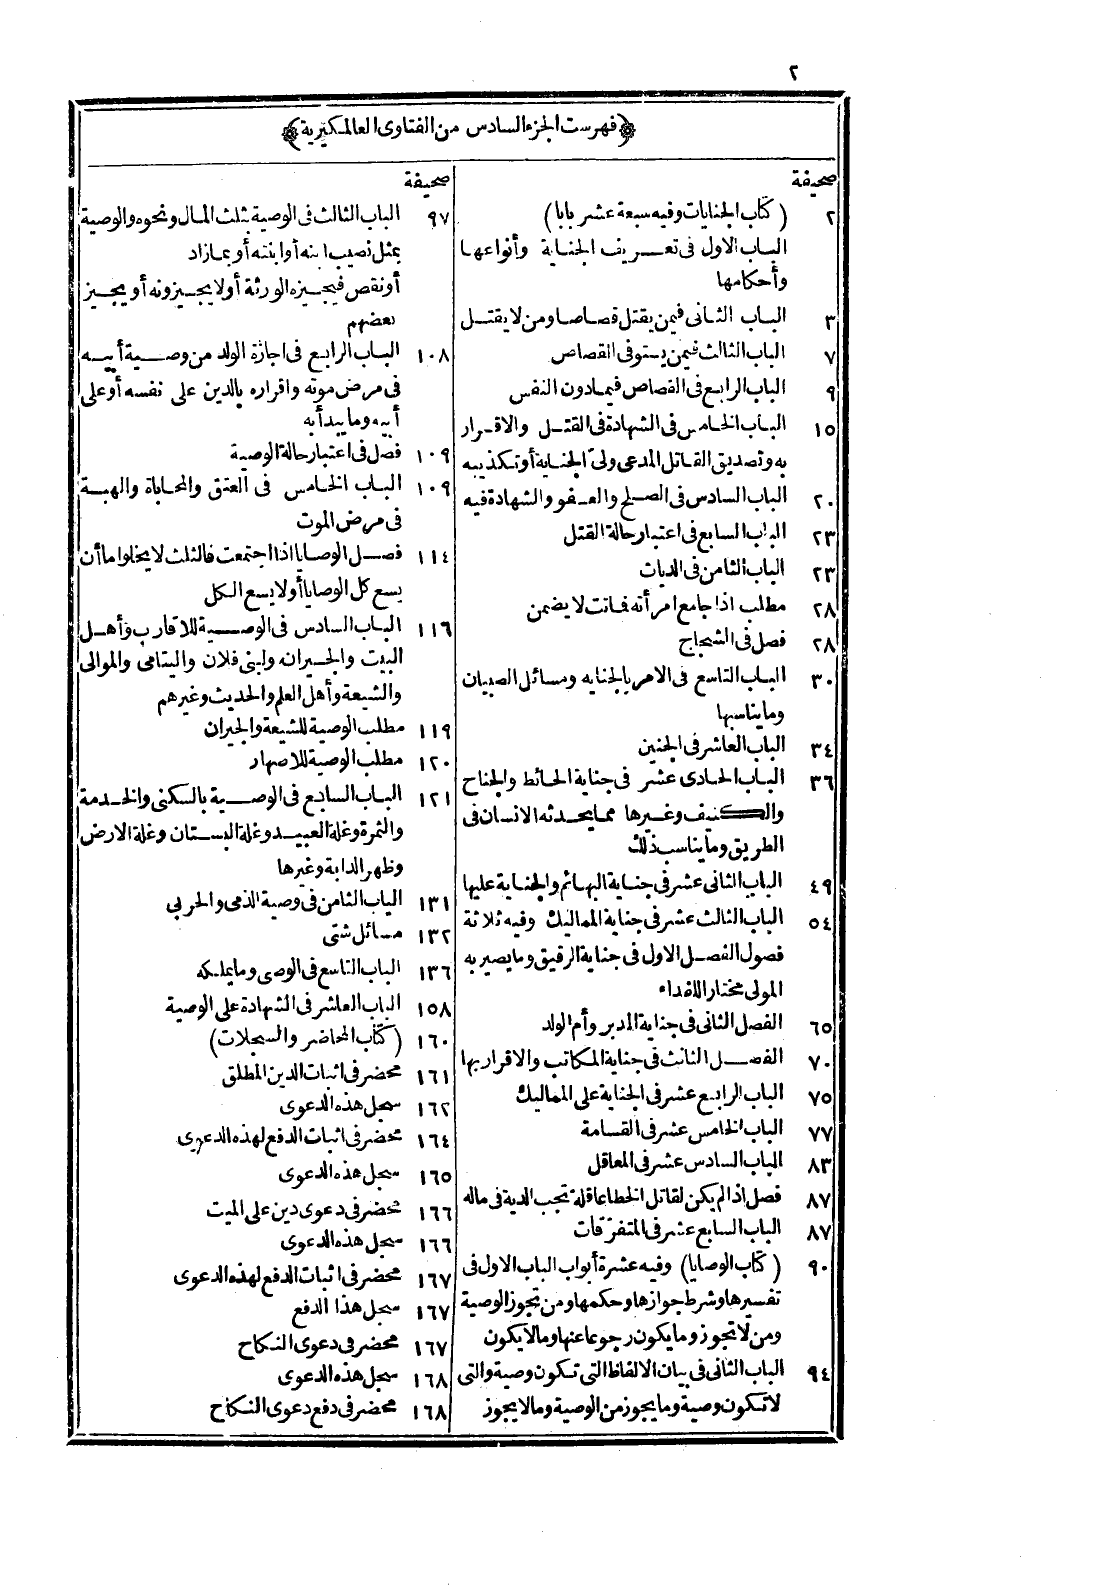 ٢
﴿فهرست الجزء السادس من الفتاوى العالمكيرية﴾
صحيفة
٢ (كتاب الجنايات وفيه سبعة عشر بابا)
الباب الاول فى تعريف الجناية وأنواعها
وأحكامها
٣ الباب الثانى فيمن يقتل قصاصا ومن لا يقتل
٧ الباب الثالث فيمن يستوفى القصاص
٩ الباب الرابع فى القصاص فيمادون النفس
١٥ الباب الخامس فى الشهادة فى القتل والاقرار
به وتصديق القاتل المدعى ولى الجناية أوتكذيبه
٢٠ الباب السادس فى الصلح والعفو والشهادة فيه
٢٣ الباب السابع فى اعتبار حالة القتل
٢٣ الباب الثامن فى الديات
٢٨ مطلب اذا جامع امرأته فماتت لا يضمن
٢٨ فصل فى الشجاج
٣٠ الباب التاسع فى الامر بالجنايه ومسائل الصبيان
وما يناسبها
٣٤ الباب العاشر فى الجنين
٣٦ الباب الحادى عشر فى جناية الحائط والجناح
والكنيف وغيرها مما يحدثه الانسان فى
الطريق وما يناسب ذلك
٤٩ الباب الثانى عشر فى جناية البهائم والجناية عليها
٥٤ الباب الثالث عشر فى جناية المماليك وفيه ثلاثة
فصول الفصل الاول فى جناية الرقيق وما يصير به
المولى مختار اللفداء
٦٥ الفصل الثانى فى جناية المدبر وأم الولد
٧٠ الفصل الثالث فى جناية المكاتب والاقرار بها
٧٥ الباب الرابع عشر فى الجناية على المماليك
٧٧ الباب الخامس عشر فى القسامة
٨٣ الباب السادس عشر فى المعاقل
٨٧ فصل اذا لم يكن لقاتل الخطا عاقلة تجب الدية فى ماله
٨٧ الباب السابع عشر فى المتفرقات
٩٠ (كتاب الوصايا) وفيه عشرة أبواب الباب الاول فى
تفسيرها وشرط جوازها وحكمها ومن تجوز الوصية
ومن لا تجوز وما يكون رجوعا عنها وما لا يكون
٩٤ الباب الثانى فى بيان الالفاظ التى تكون وصية والتى
لا تكون وصية وما يجوز من الوصية وما لا يجوز
صحيفة
٩٧ الباب الثالث فى الوصية بثلث المال ونحوه والوصية
بمثل نصيب ابنه أوابنته أو بمازاد
أونقص فيجيزه الورثة أولا يجيزونه أو يجيز
بعضهم
١٠٨ الباب الرابع فى اجازة الولد من وصية أبيه
فى مرض موته واقراره بالدين على نفسه أو على
أبيه وما يبدأ به
١٠٩ فصل فى اعتبار حالة الوصية
١٠٩ الباب الخامس فى العتق والمحاباة والهبة
فى مرض الموت
١١٤ فصل الوصايا اذا اجتمعت فالثلث لا يخلو اما أن
يسع كل الوصايا أولا يسع الكل
١١٦ الباب السادس فى الوصية للاقارب وأهل
البيت والجيران وابنى فلان واليتامى والموالى
والشيعة وأهل العلم والحديث وغيرهم
١١٩ مطلب الوصية للشيعة والجيران
١٢٠ مطلب الوصية للاصهار
١٢١ الباب السابع فى الوصية بالسكنى والخدمة
والثمرة وغلة العبيد وغلة البستان وغلة الارض
وظهر الدابة وغيرها
١٣١ الباب الثامن فى وصية الذمى والحربى
١٣٢ مسائل شتى
١٣٦ الباب التاسع فى الوصى وما يملكه
١٥٨ الباب العاشر فى الشهادة على الوصية
١٦٠ (كتاب المحاضر والسجلات)
١٦١ محضر فى اثبات الدين المطلق
١٦٢ سجل هذه الدعوى
١٦٤ محضر فى اثبات الدفع لهذه الدعوى
١٦٥ سجل هذه الدعوى
١٦٦ محضر فى دعوى دين على الميت
١٦٦ سجل هذه الدعوى
١٦٧ محضر فى اثبات الدفع لهذه الدعوى
١٦٧ سجل هذا الدفع
١٦٧ محضر فى دعوى النكاح
١٦٨ سجل هذه الدعوى
١٦٨ محضر فى دفع دعوى النكاح